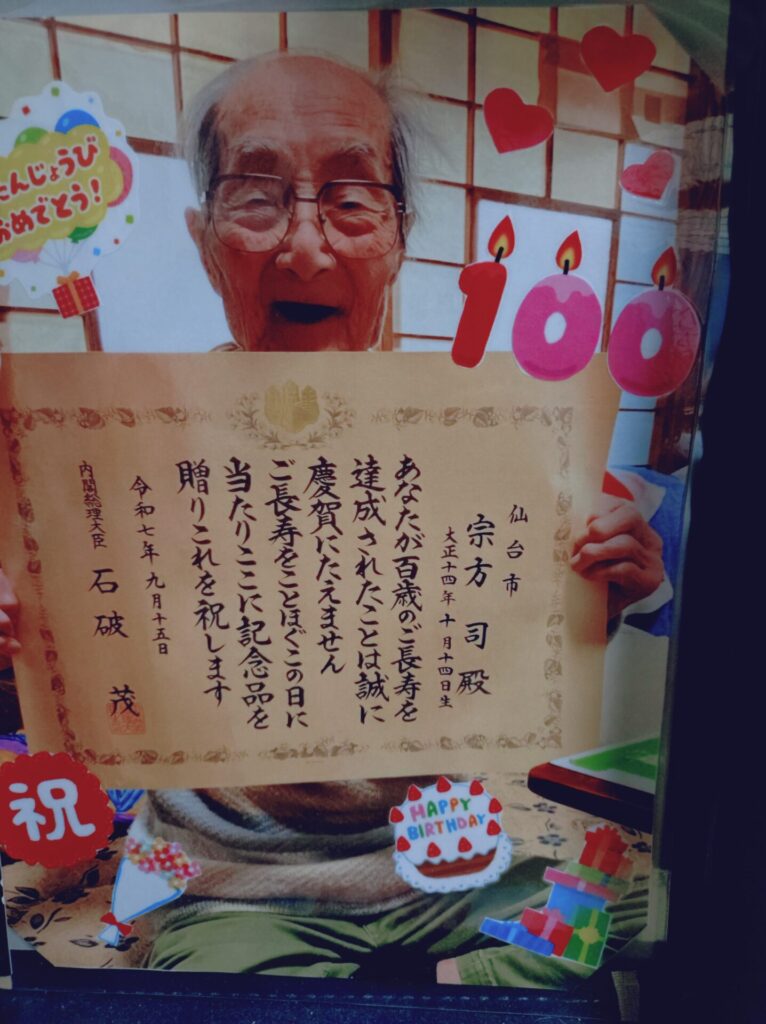 たんじょうび
おめでとう！
100
仙台市
宗方 司 殿
大正十四年十月十四日生
あなたが百歳のご長寿を
達成されたことは誠に
慶賀にたえません
ご長寿をことほぐこの日に
当たりここに記念品を
贈りこれを祝します
令和七年九月十五日
内閣総理大臣 石破 茂
祝
HAPPY
BIRTHDAY